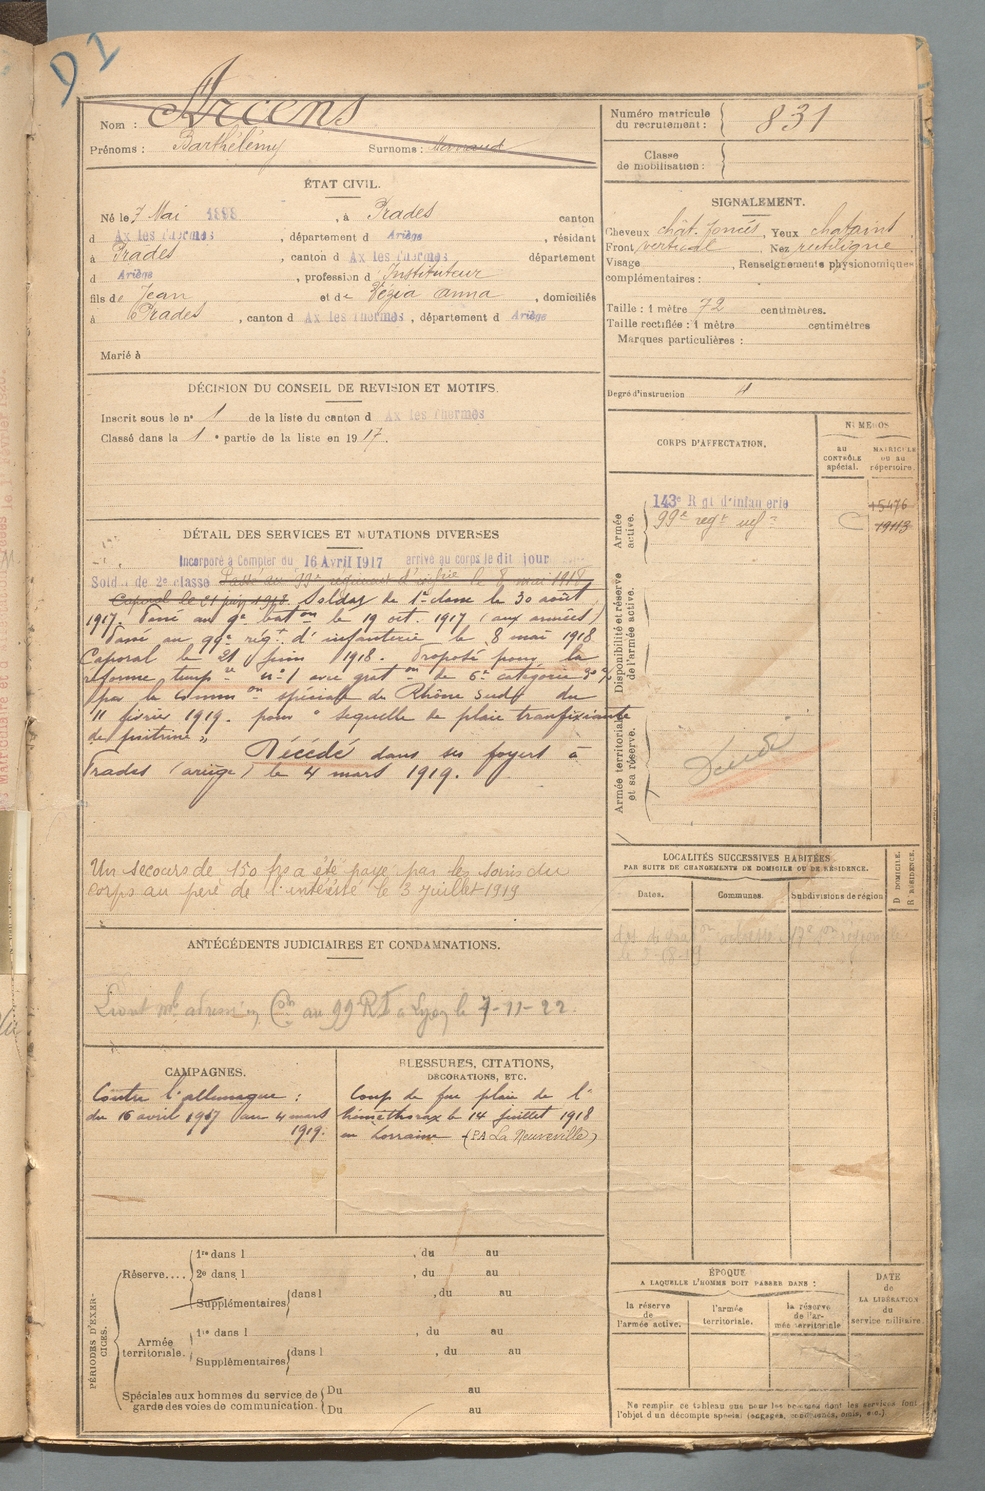 D1
Nom : Arcens
Prénoms : Barthélémy Surnoms :
Numéro matricule du recrutement : 831
Classe de mobilisation :
ÉTAT CIVIL.
Né le 7 Mai 1898, à Prades canton
d Ax les Thermes, département d Ariège, résidant
à Prades, canton d Ax les Thermes département
d Ariège, profession d Instituteur
fils de Jean et de Végia anna, domiciliés
à Prades, canton d Ax les Thermes, département d Ariège
Marié à
SIGNALEMENT.
Cheveux chat. foncés, Yeux chatains
Front vertical, Nez rectiligne
Visage , Renseignements physionomiques
complémentaires :
Taille : 1 mètre 72 centimètres.
Taille rectifiée : 1 mètre centimètres
Marques particulières :
Degré d'instruction
DÉCISION DU CONSEIL DE REVISION ET MOTIFS.
Inscrit sous le nº 1 de la liste du canton d Ax les Thermes
Classé dans la 1 e partie de la liste en 1917.
CORPS D'AFFECTATION.
NUMÉROS
au CONTRÔLE spécial.
MATRICULE ou au répertoire.
Armée active.
143e Rgt d'Infanterie 15476
99e regt inf ie C 19113
Disponibilité et réserve de l'armée active.
Armée territoriale et sa réserve.
DÉTAIL DES SERVICES ET MUTATIONS DIVERSES
Incorporé à Compter du 16 Avril 1917 arrivé au corps le dit jour
Soldat de 2e classe Passé au 99e regiment d'infrie le 8 mai 1918
Caporal le 21 juin 1918. Soldat de 1e classe le 30 août
1917. Passé au 9e baton le 19 oct. 1917 (aux armées)
Passé au 99e régt d'infanterie le 8 mai 1918
Caporal le 21 juin 1918. Proposé pour la
réforme tempre nº 1 avec graton de 6e catégorie
par la common spéciale du Rhône Sud du
11 février 1919. pour " sequelle de plaie transfixiante
de poitrine "
Décédé dans ses foyers à
Prades (ariège) le 4 mars 1919.
Un secours de 150 frs a été payé par les soins du
corps au père de l'intéressé le 3 juillet 1919
LOCALITÉS SUCCESSIVES HABITÉES
PAR SUITE DE CHANGEMENTS DE DOMICILE OU DE RÉSIDENCE.
Dates. Communes. Subdivisions de région
D. DOMICILE. R. RÉSIDENCE.
ANTÉCÉDENTS JUDICIAIRES ET CONDAMNATIONS.
au 99 RI à Lyon le 7-11-22
CAMPAGNES.
Contre l'allemagne :
du 16 avril 1917 au 4 mars
1919.
BLESSURES, CITATIONS,
DÉCORATIONS, ETC.
Coup de feu plaie de l'
hémithorax le 14 juillet 1918
en Lorraine (PA La Neuveville)
PÉRIODES D'EXERCICES.
Réserve.... 1re dans l , du au
2e dans l , du au
Supplémentaires dans l , du au
Armée territoriale. 1re dans l , du au
Supplémentaires dans l , du au
Spéciales aux hommes du service de garde des voies de communication. Du au
Du au
ÉPOQUE
A LAQUELLE L'HOMME DOIT PASSER DANS :
la réserve de l'armée active.
l'armée territoriale.
la réserve de l'armée territoriale
DATE de LA LIBÉRATION du service militaire.
Ne remplir ce tableau que pour les hommes dont les services font
l'objet d'un décompte spécial (engagés, condamnés, omis, etc.)